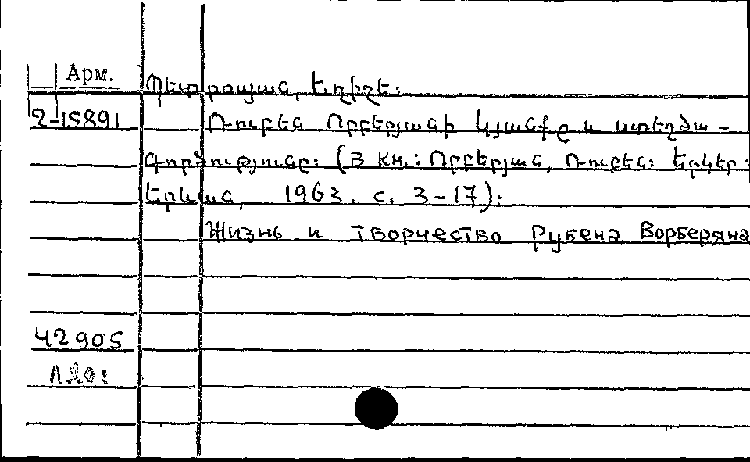 Арм.
Պետրոսյան, Եղիշե:
2-15891 Ռուբեն Որբերյանի կյանքը և ստեղծա-
գործությունը: (В кн.: Որբերյան, Ռուբեն: Երկեր:
Երևան, 1963. с. 3-17):
Жизнь и творчество Рубена Ворберяна
42905